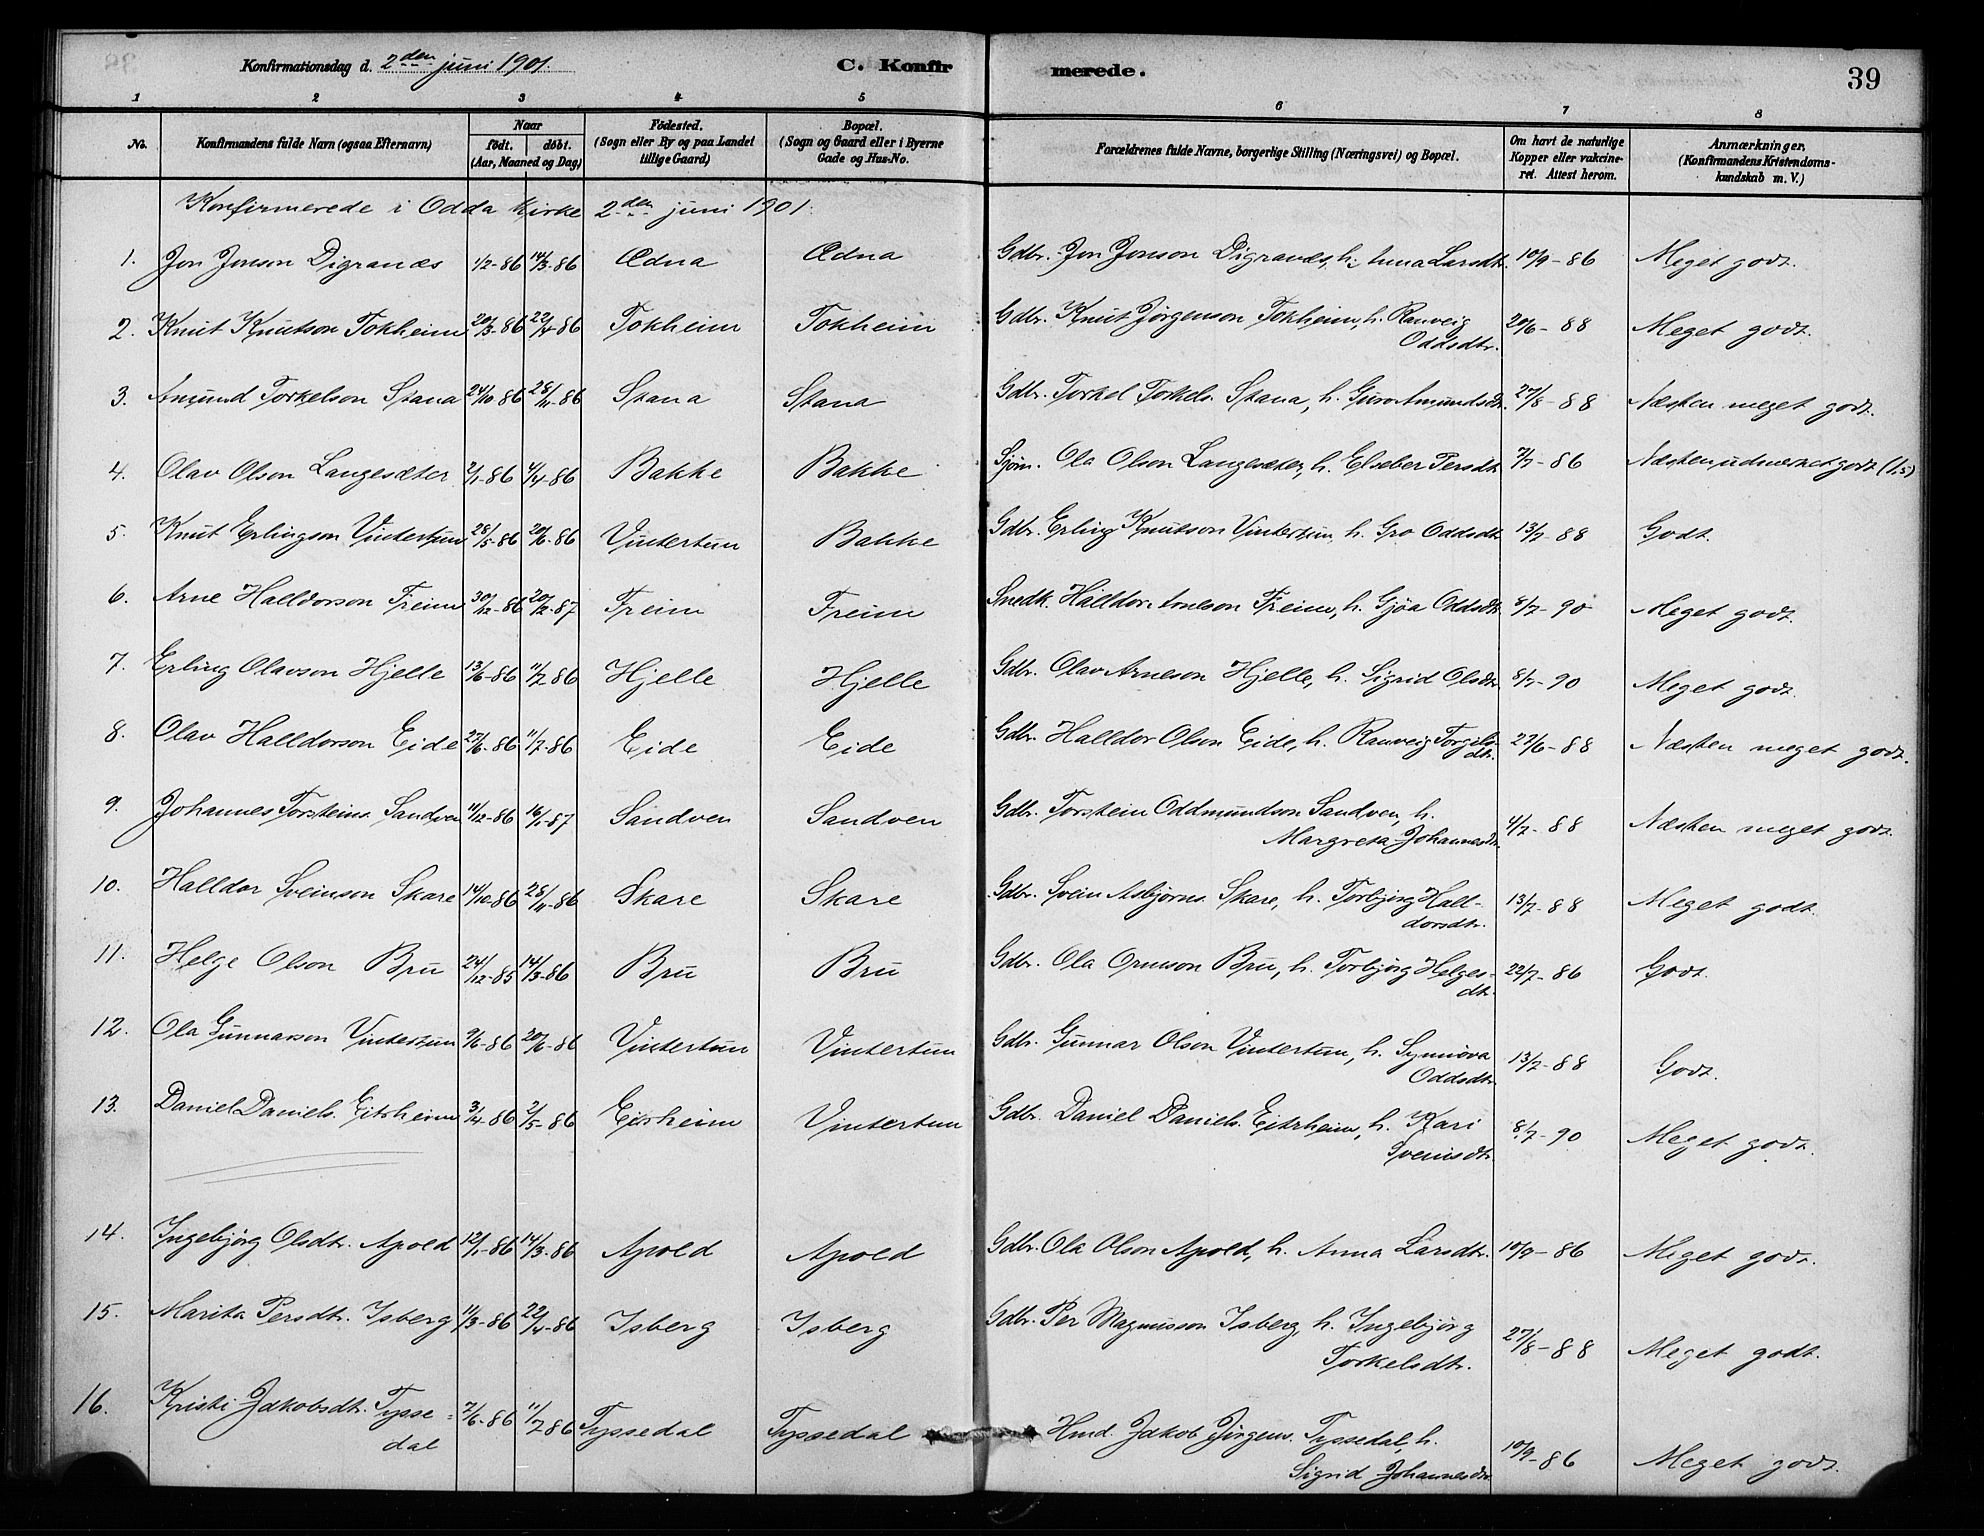 Konfirmationsdag d. 2den juni 1901.
C. Konfirmerede.
39
1 2 3 4 5 6 7 8
No.
Konfirmandens fulde Navn (ogsaa Efternavn)
Naar
født. døbt.
(Aar, Maaned og Dag)
Fødested.
(Sogn eller By og paa Landet
tillige Gaard)
Bopæl.
(Sogn og Gaard eller i Byerne
Gade og Hus-No.
Forældrenes fulde Navne, borgerlige Stilling (Næringsvei) og Bopæl.
Om havt de naturlige
Kopper eller vakcine-
ret. Attest herom.
Anmærkninger.
(Konfirmandens Kristendoms-
kundskab m. V.)
Konfirmerede i Odda Kirke 2den juni 1901.
1. Jon Jonson Digranæs 1/2-86 14/3-86 Ædna Ædna Gdbr. Jon Jonson Digranæs, h. Anna Larsdtr. 10/9-86 Meget godt.
2. Knut Knutson Tokheim 20/3-86 22/4-86 Tokheim Tokheim Gdbr. Knut Jørgenson Tokheim, h. Ranveig
Oddsdtr. 20/6-88 Meget godt.
3. Amund Torkelson Skana 24/10-86 28/11-86 Skana Skana Gdbr. Torkel Torkels. Skana, h. Guro Amundsdtr. 27/8-88 Næsten meget godt.
4. Olav Olson Langesæter 2/1-86 4/4-86 Bakke Bakke Sjøm. Ola Olson Langesæter, h. Elseber Persdtr. 7/7-86 Næsten udmærket godt (1,5)
5. Knut Erlingson Vintertun 28/5-86 20/6-86 Vintertun Bakke Gdbr. Erling Knutson Vintertun, h. Gro Oddsdtr. 13/7-88 Godt.
6. Arne Halldorson Freim 30/12-86 20/2-87 Freim Freim Snedk. Halldor Arneson Freim, h. Gjøa Oddsdtr. 8/7-90 Meget godt.
7. Erling Olavson Hjelle 13/6-86 11/7 86 Hjelle Hjelle Gdbr. Olav Arneson Hjelle, h. Sigrid Olsdtr. 8/7-90 Meget godt.
8. Olav Halldorson Eide 27/6-86 11/7-86 Eide Eide Gdbr. Halldor Olson Eide, h. Ranveig Torgils-
dtr. 27/6-88 Næsten meget godt.
9. Johannes Torsteins. Sandven 11/12-86 16/1-87 Sandven Sandven Gdbr. Torstein Oddmundson Sandven, h.
Margreta Johannesdtr. 4/7-88 Næsten meget godt.
10. Halldor Sveinson Skare 14/10-86 28/11-86 Skare Skare Gdbr. Svein Asbjørns. Skare, h. Torbjørg Hall-
dorsdtr. 13/7-88 Meget godt.
11. Helge Olson Bru 24/12-85 14/3-86 Bru Bru Gdbr. Ola Ormson Bru, h. Torbjørg Helges-
dtr. 22/7-86 Godt.
12. Ola Gunnarson Vintertun 9/6-86 20/6-86 Vintertun Vintertun Gdbr. Gunnar Olson Vintertun, h. Synnøva
Oddsdtr. 13/7-88 Godt.
13. Daniel Daniels. Eitrheim 3/4-86 2/5-86 Eitrheim Vintertun Gdbr. Daniel Daniels. Eitrheim, h. Kari
Sveinsdtr. 8/7-90 Meget godt.
14. Ingebjørg Olsdtr. Apold 12/1-86 14/3-86 Apold Apold Gdbr. Ola Olson Apold, h. Anna Larsdtr. 10/9-86 Meget godt.
15. Marita Persdtr. Isberg 11/3-86 22/4-86 Isberg Isberg Gdbr. Per Magnusson Isberg, h. Ingebjørg
Torkelsdtr. 27/8-88 Meget godt.
16. Kristi Jakobsdtr. Tysse-
dal 7/6-86 11/7 86 Tyssedal Tyssedal Hmd. Jakob Jørgens. Tyssedal, h.
Sigrid Johannesdtr. 10/9-86 Meget godt.